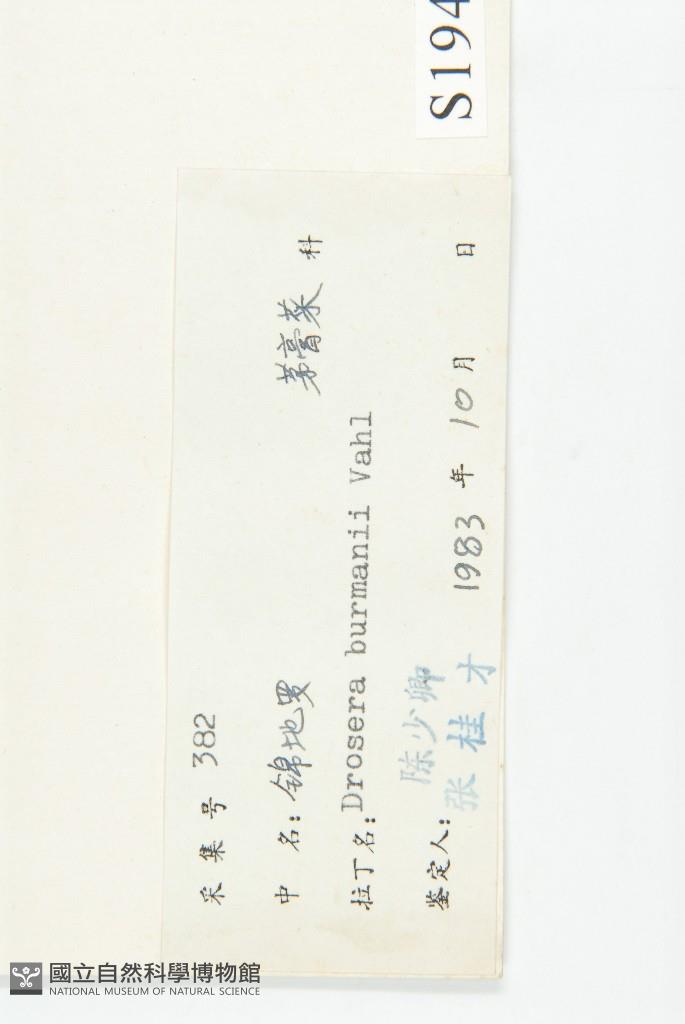 S194
采集号 382
茅膏菜 科
中名: 锦地罗
拉丁名: Drosera burmanii Vahl
陈少卿
鉴定人: 张桂才 1983 年 10 月 日
國立自然科學博物館
NATIONAL MUSEUM OF NATURAL SCIENCE